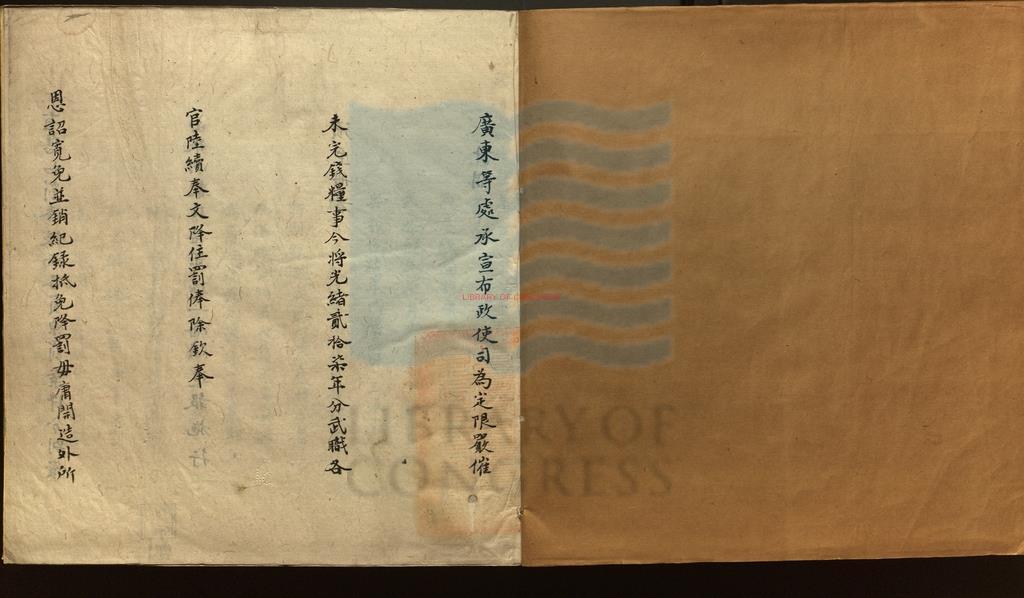 廣東等處承宣布政使司為定限嚴催
未完錢糧事今將光緒貳拾柒年分武職各
官陸續奉文降住罰俸除欽奉
恩詔寬免並銷紀錄抵免降罰毋庸開造外所
LIBRARY OF CONGRESS
LIBRARY OF
CONGRESS